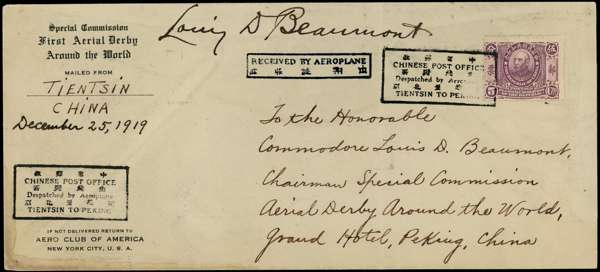 Special Commission
First Aerial Derby
Around the World
MAILED FROM
TIENTSIN
CHINA
December 25, 1919
Louis D Beaumont
RECEIVED BY AEROPLANE
CHINESE POST OFFICE
Despatched by Aeroplane
TIENTSIN TO PEKING
To the Honorable
Commodore Louis D. Beaumont,
Chairman Special Commission
Aerial Derby Around the World,
Grand Hotel, Peking, China
CHINESE POST OFFICE
Despatched by Aeroplane
TIENTSIN TO PEKING
IF NOT DELIVERED RETURN TO
AERO CLUB OF AMERICA
NEW YORK CITY, U. S. A.